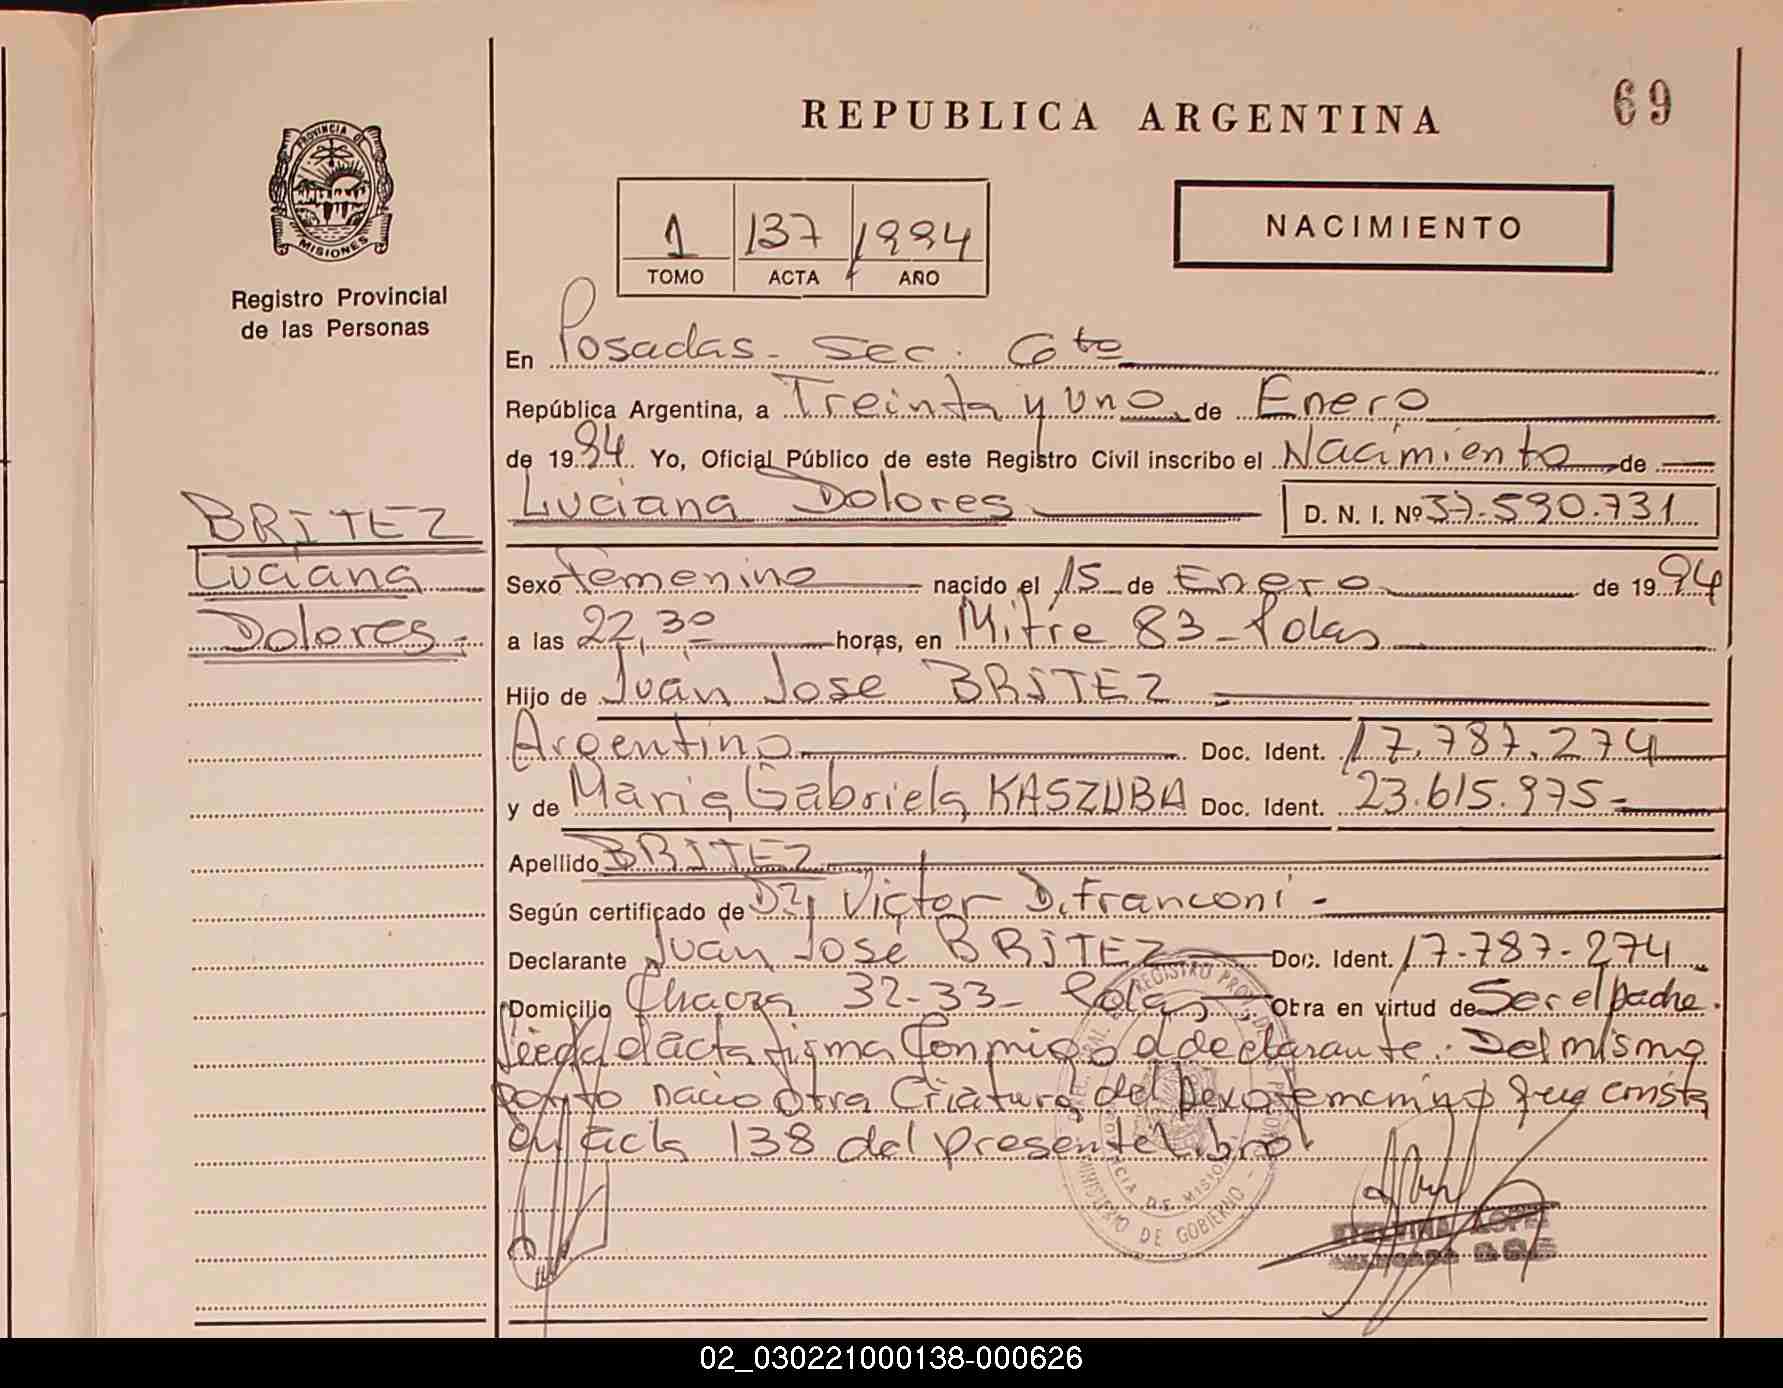 REPUBLICA ARGENTINA
69
PROVINCIA DE
MISIONES
Registro Provincial
de las Personas
1 137 1994
TOMO ACTA AÑO
NACIMIENTO
En Posadas - Sec. 6to
República Argentina, a Treinta y uno de Enero
de 1994. Yo, Oficial Público de este Registro Civil inscribo el Nacimiento de
Luciana Dolores D. N. I. Nº 37.590.731
BRITEZ
Luciana
Dolores.
Sexo Femenino nacido el 15 de Enero de 1994
a las 22,30 horas, en Mitre 83 - Pdas
Hijo de Juan Jose BRITEZ
Argentino Doc. Ident. 17.787.274
y de Maria Gabriela KASZUBA Doc. Ident. 23.615.975 -
Apellido BRITEZ
Según certificado de Victor D. Franconi -
Declarante Juan José BRITEZ Doc. Ident. 17-787-274
Domicilio Chacra 32-33 - Pdas Obra en virtud de Ser el padre.
Leida el acta firma Conmigo el declarante. Del mismo
parto nacio otra Criatura del sexo femenino que consta
en acta 138 del presente libro
MINISTERIO DE GOBIERNO
02_030221000138-000626